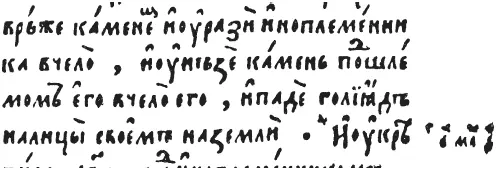 вре́же ка́мене и҆оу҆́рази̏ и҆нопле́ме́нни
ка вчело̀ , и҆оу҆ньзѐ ка́мень поⷣшле́
момъ е҆го вчело̀ его , и҆падѐ
налицы̀ своемъ наземлѝ . И҆оу҆крѣ